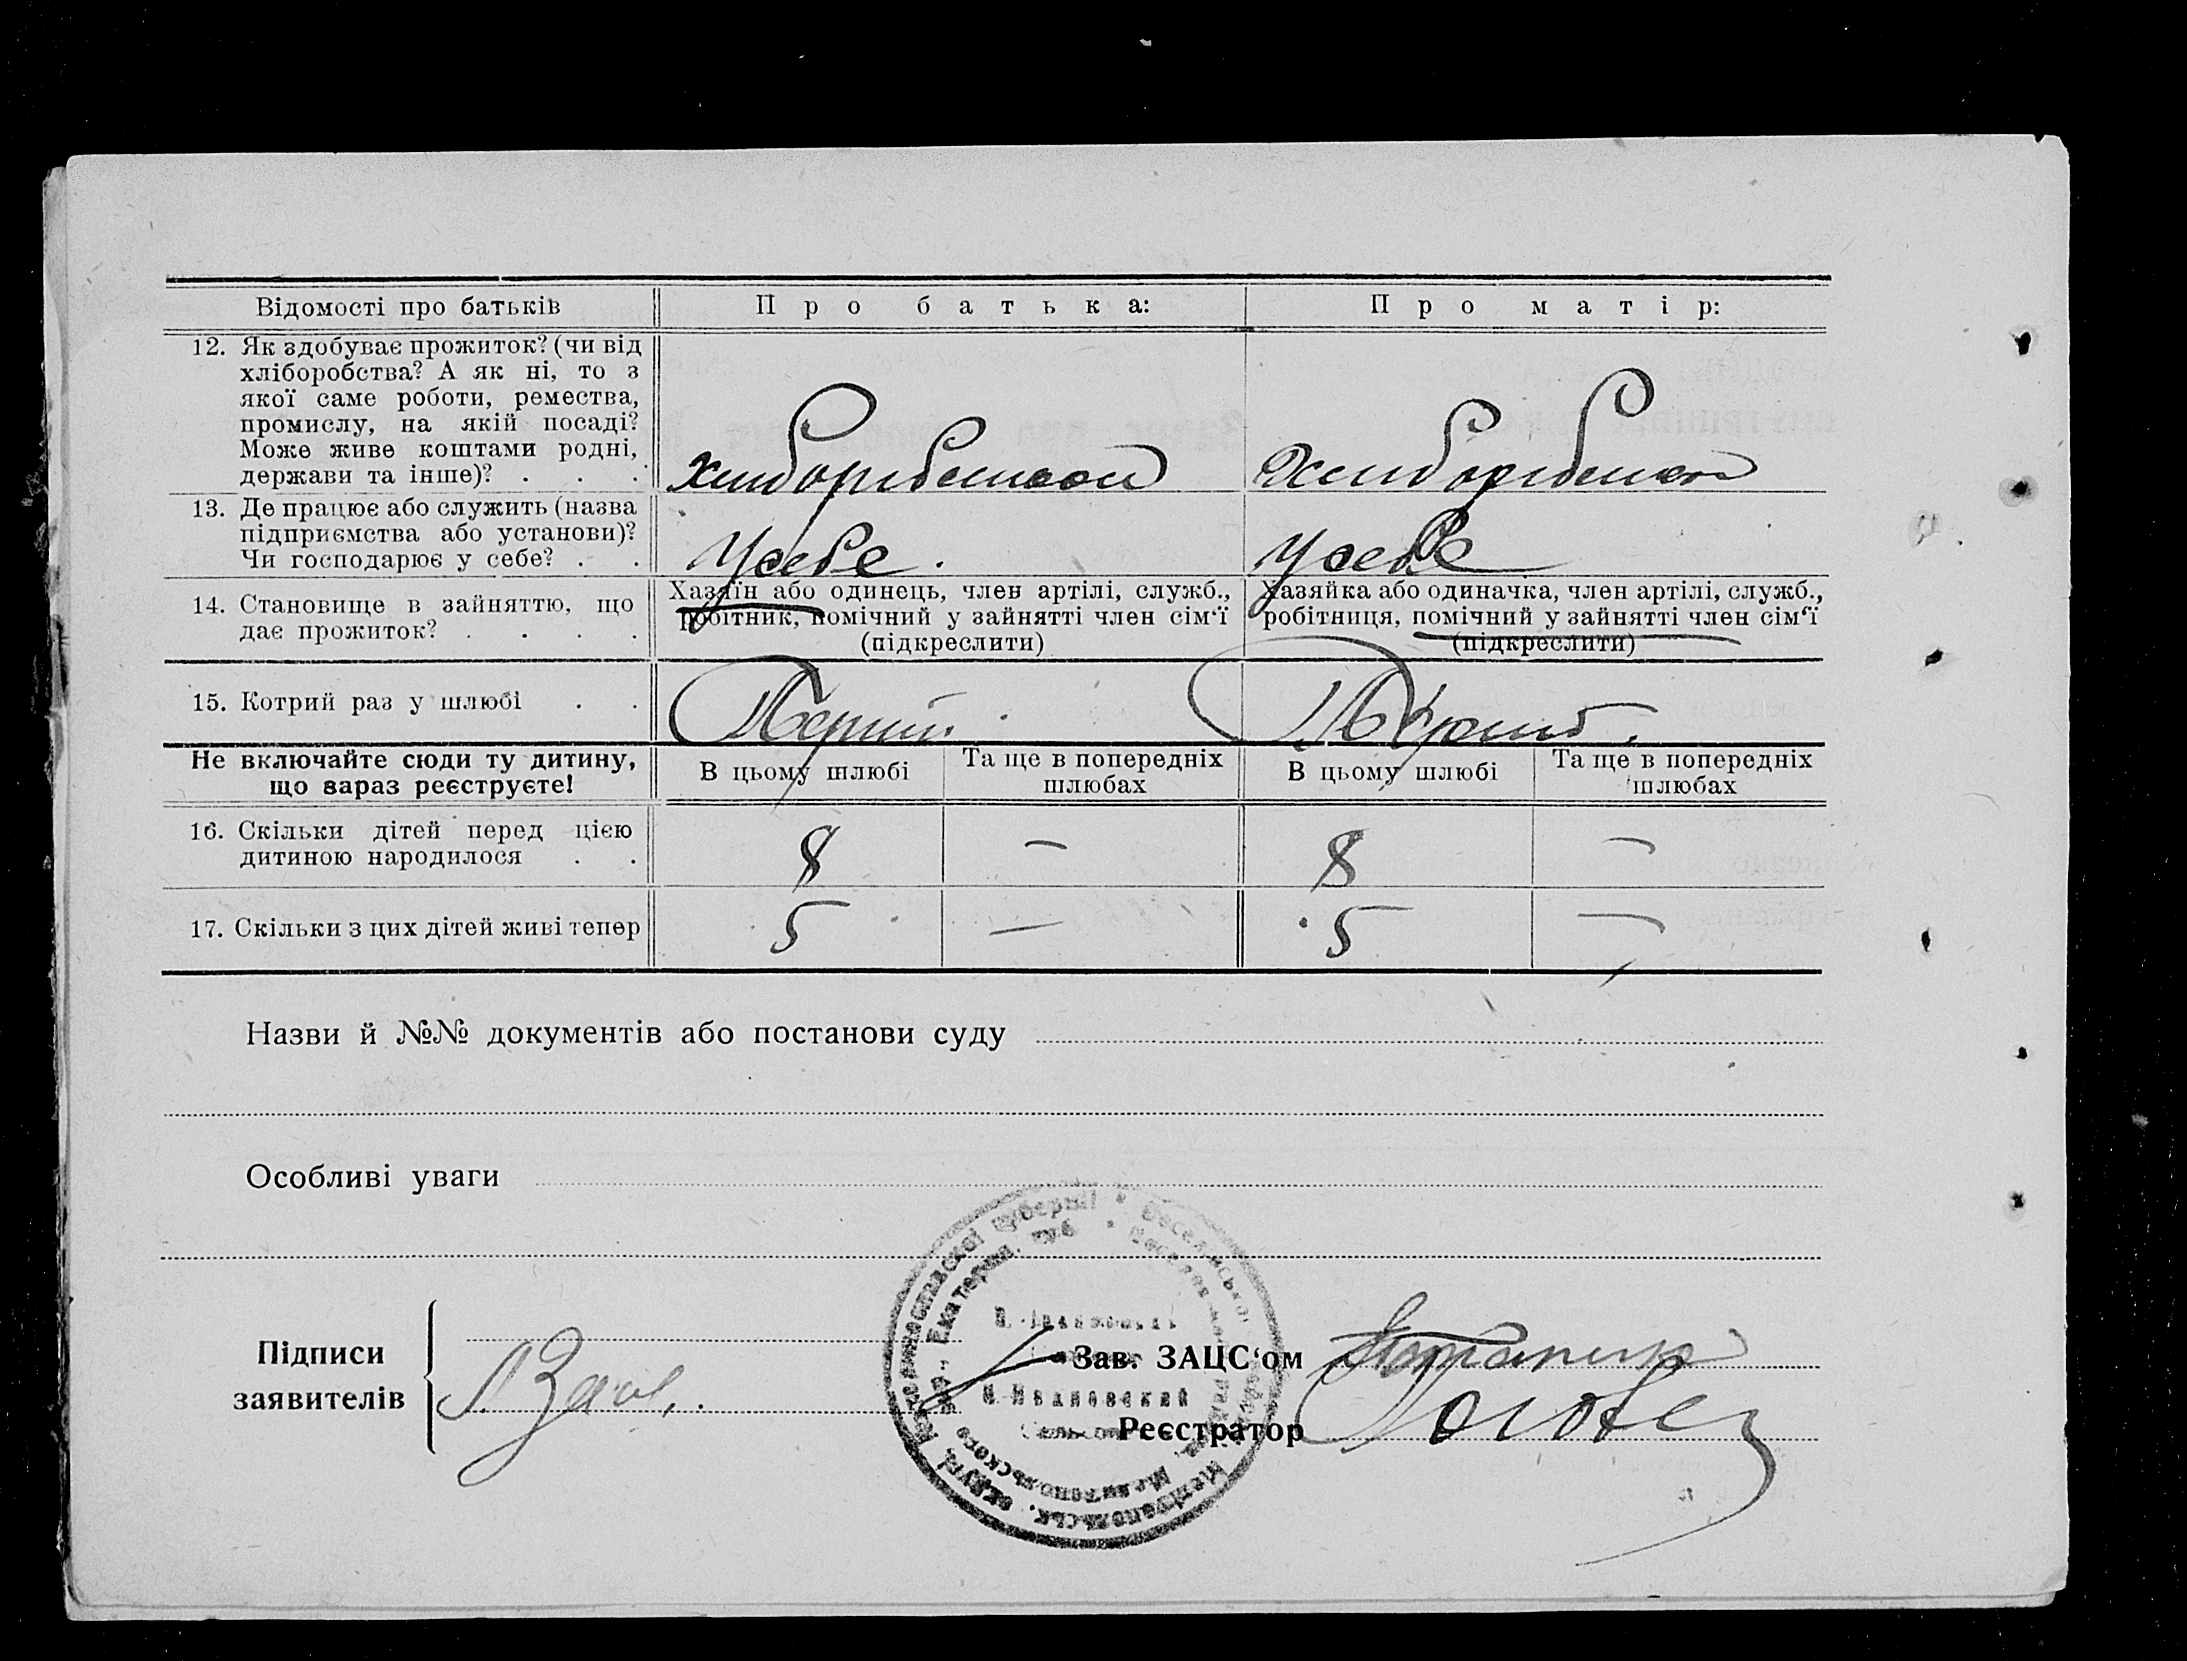 Відомості про батьків
Про батька:
Про матір:
12. Як здобуває прожиток? (чи від
хліборобства? А як ні, то з
якої саме роботи, ремества,
промислу, на якій посаді?
Може живе коштами родні,
держави та інше)? . . .
13. Де працює або служить (назва
підприємства або установи)?
Чи господарює у себе? . .
Усебе.
Усебе
14. Становище в зайняттю, що
дає прожиток? . . . .
Хазяїн або одинець, член артілі, служб.,
робітник, помічний у зайнятті член сім‘ї
(підкреслити)
Хазяйка або одиначка, член артілі, служб.,
робітниця, помічний у зайнятті член сім‘ї
(підкреслити)
15. Котрий раз у шлюбі . .
Не включайте сюди ту дитину,
що зараз реєструєте!
В цьому шлюбі
Та ще в попередніх
шлюбах
В цьому шлюбі
Та ще в попередніх
шлюбах
16. Скільки дітей перед цією
дитиною народилося . .
8 — 8 —
17. Скільки з цих дітей живі тепер
5 — 5 —
Назви й №№ документів або постанови суду
Особливі уваги
Підписи
заявителів
Зав. ЗАЦС‘ом
Реєстратор